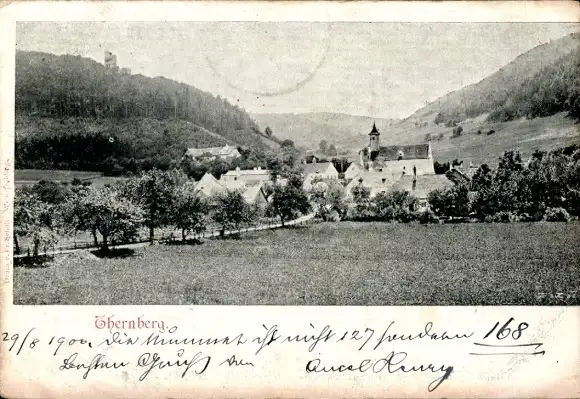 Thernberg.
29/8 1900. die Nummer ist nicht 127 sondern 168
Besten Gruß von Onkel Henry